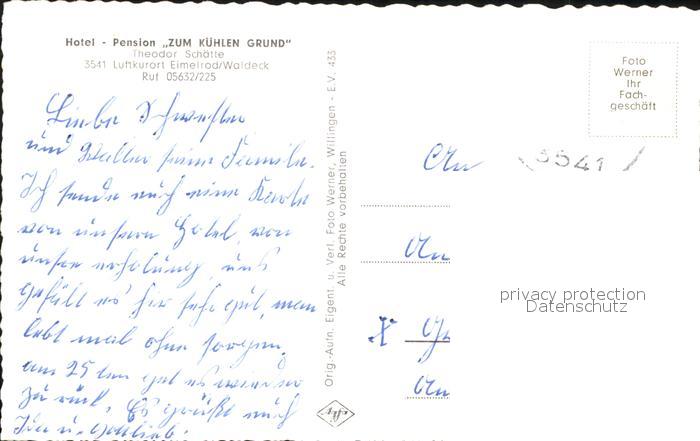 Hotel - Pension „ZUM KÜHLEN GRUND"
Theodor Schötte
3541 Luftkurort Eimelrod/Waldeck
Ruf 05632/225
Liebe Schwester
und Walter seine Familie.
Ich sende euch eine Karte
von unseren Hotel, von
unser erholung, uns
gefällt es hir sehr gut, man
lebt mal ohne sorgen.
am 25 ten get es wieder
zu rück. Es grüßt euch
u. Gottlieb.
Orig.-Aufn. Eigent. u. Verl. Foto Werner, Willingen - E.V. 433
Alle Rechte vorbehalten
Foto
Werner
Ihr
Fach-
geschäft
3541
An
An
privacy protection
Datenschutz
X
An